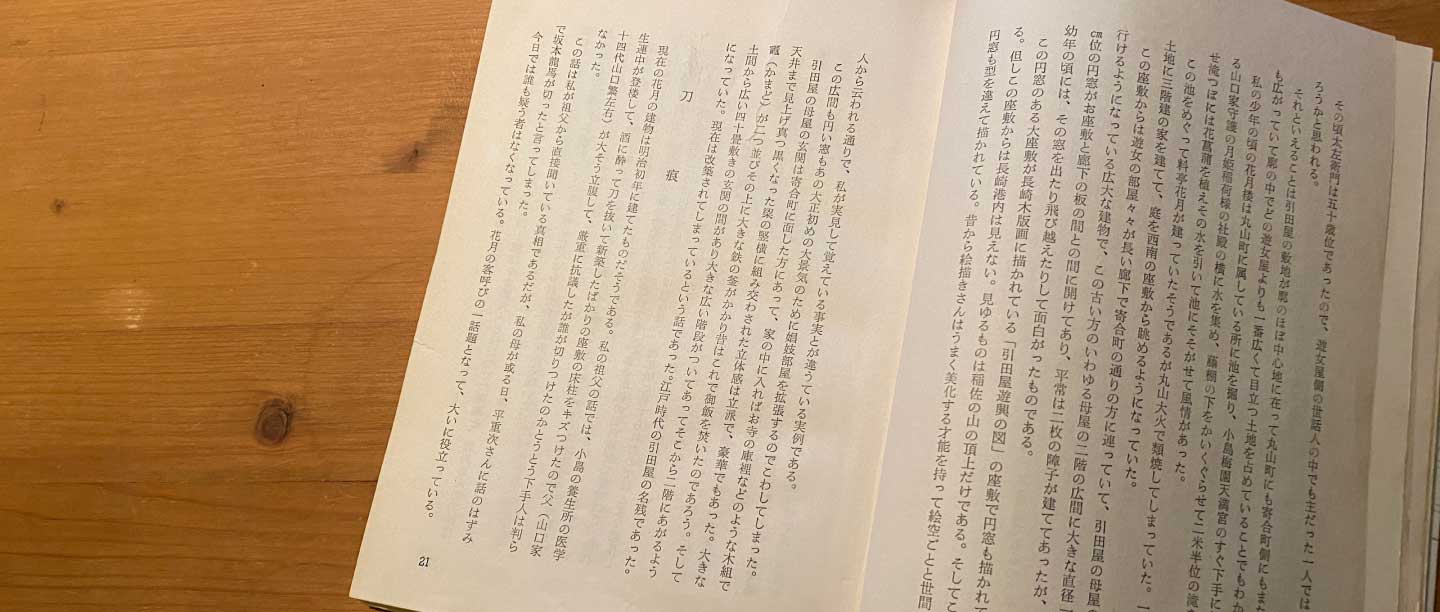 その頃太左衛門は五十歳位であったので、遊女屋側の世話人の中でも主だった一人では
ろうかと思われる。
それといえることは引田屋の敷地が廓のほぼ中心地に在って丸山町にも寄合町側にもま
も広がっていて廓の中でどの遊女屋よりも一番広くて目立つ土地を占めていることでもわか
私の少年の頃の花月楼は丸山町に属している所に池を掘り、小島梅園天満宮のすぐ下手に
る山口家守護の月姫稲荷様の社殿の横に水を集め、藤棚の下をかいくぐらせて二米半位の滝
せ滝つぼには花菖蒲を植えその水を引いて池にそそがせて風情があった。
この池をめぐって料亭花月が建っていたそうであるが丸山大火で類焼してしまっていた。一
土地に三階建の家を建てて、庭を西南の座敷から眺めるようになっていた。
この座敷からは遊女の部屋々々が長い廊下で寄合町の通りの方に連っていて、引田屋の母屋
行けるようになっている広大な建物で、この古い方のいわゆる母屋の二階の広間に大きな直径一
cm位の円窓がお座敷と廊下の板の間との間に開けてあり、平常は二枚の障子が建ててあったが、
幼年の頃には、その窓を出たり飛び越えたりして面白がったものである。
この円窓のある大座敷が長崎木版画に描かれている「引田屋遊興の図」の座敷で円窓も描かれて
る。但しこの座敷からは長崎港内は見えない。見ゆるものは稲佐の山の頂上だけである。そしてこ
円窓も型を違えて描かれている。昔から絵描きさんはうまく美化する才能を持って絵空ごとと世間
人から云われる通りで、私が実見して覚えている事実とが違うている実例である。
この広間も円い窓もあの大正初めの大景気のために娼妓部屋を拡張するのでこわしてしまった。
引田屋の母屋の玄関は寄合町に面した方にあって、家の中に入ればお寺の庫裡などのような木組で
天井まで見上げ真っ黒くなった梁の竪横に組み交わされた立体感は立派で、豪華でもあった。大きな
竈(かまど)が二つ並びその上に大きな鉄の釜がかかり昔はこれで御飯を焚いたのであろう。そして
土間から広い四十畳敷きの玄関の間があり大きな広い階段がついてあってそこから二階にあがるよう
になっていた。現在は改築されてしまっているという話であった。江戸時代の引田屋の名残であった。
刀痕
現在の花月の建物は明治初年に建てたものだそうである。私の祖父の話では、小島の養生所の医学
生連中が登楼して、酒に酔って刀を抜いて新築したばかりの座敷の床柱をキズつけたので父(山口家
十四代山口繁左右)が大そう立腹して、厳重に抗議したが誰が切りつけたのかとうとう下手人は判ら
なかった。
この話は私が祖父から直接聞いている真相であるだが、私の母が或る日、平重次さんに話のはずみ
で坂本龍馬が切ったと言ってしまった。
今日では誰も疑う者はなくなっている。花月の客呼びの一話題となって、大いに役立っている。
21